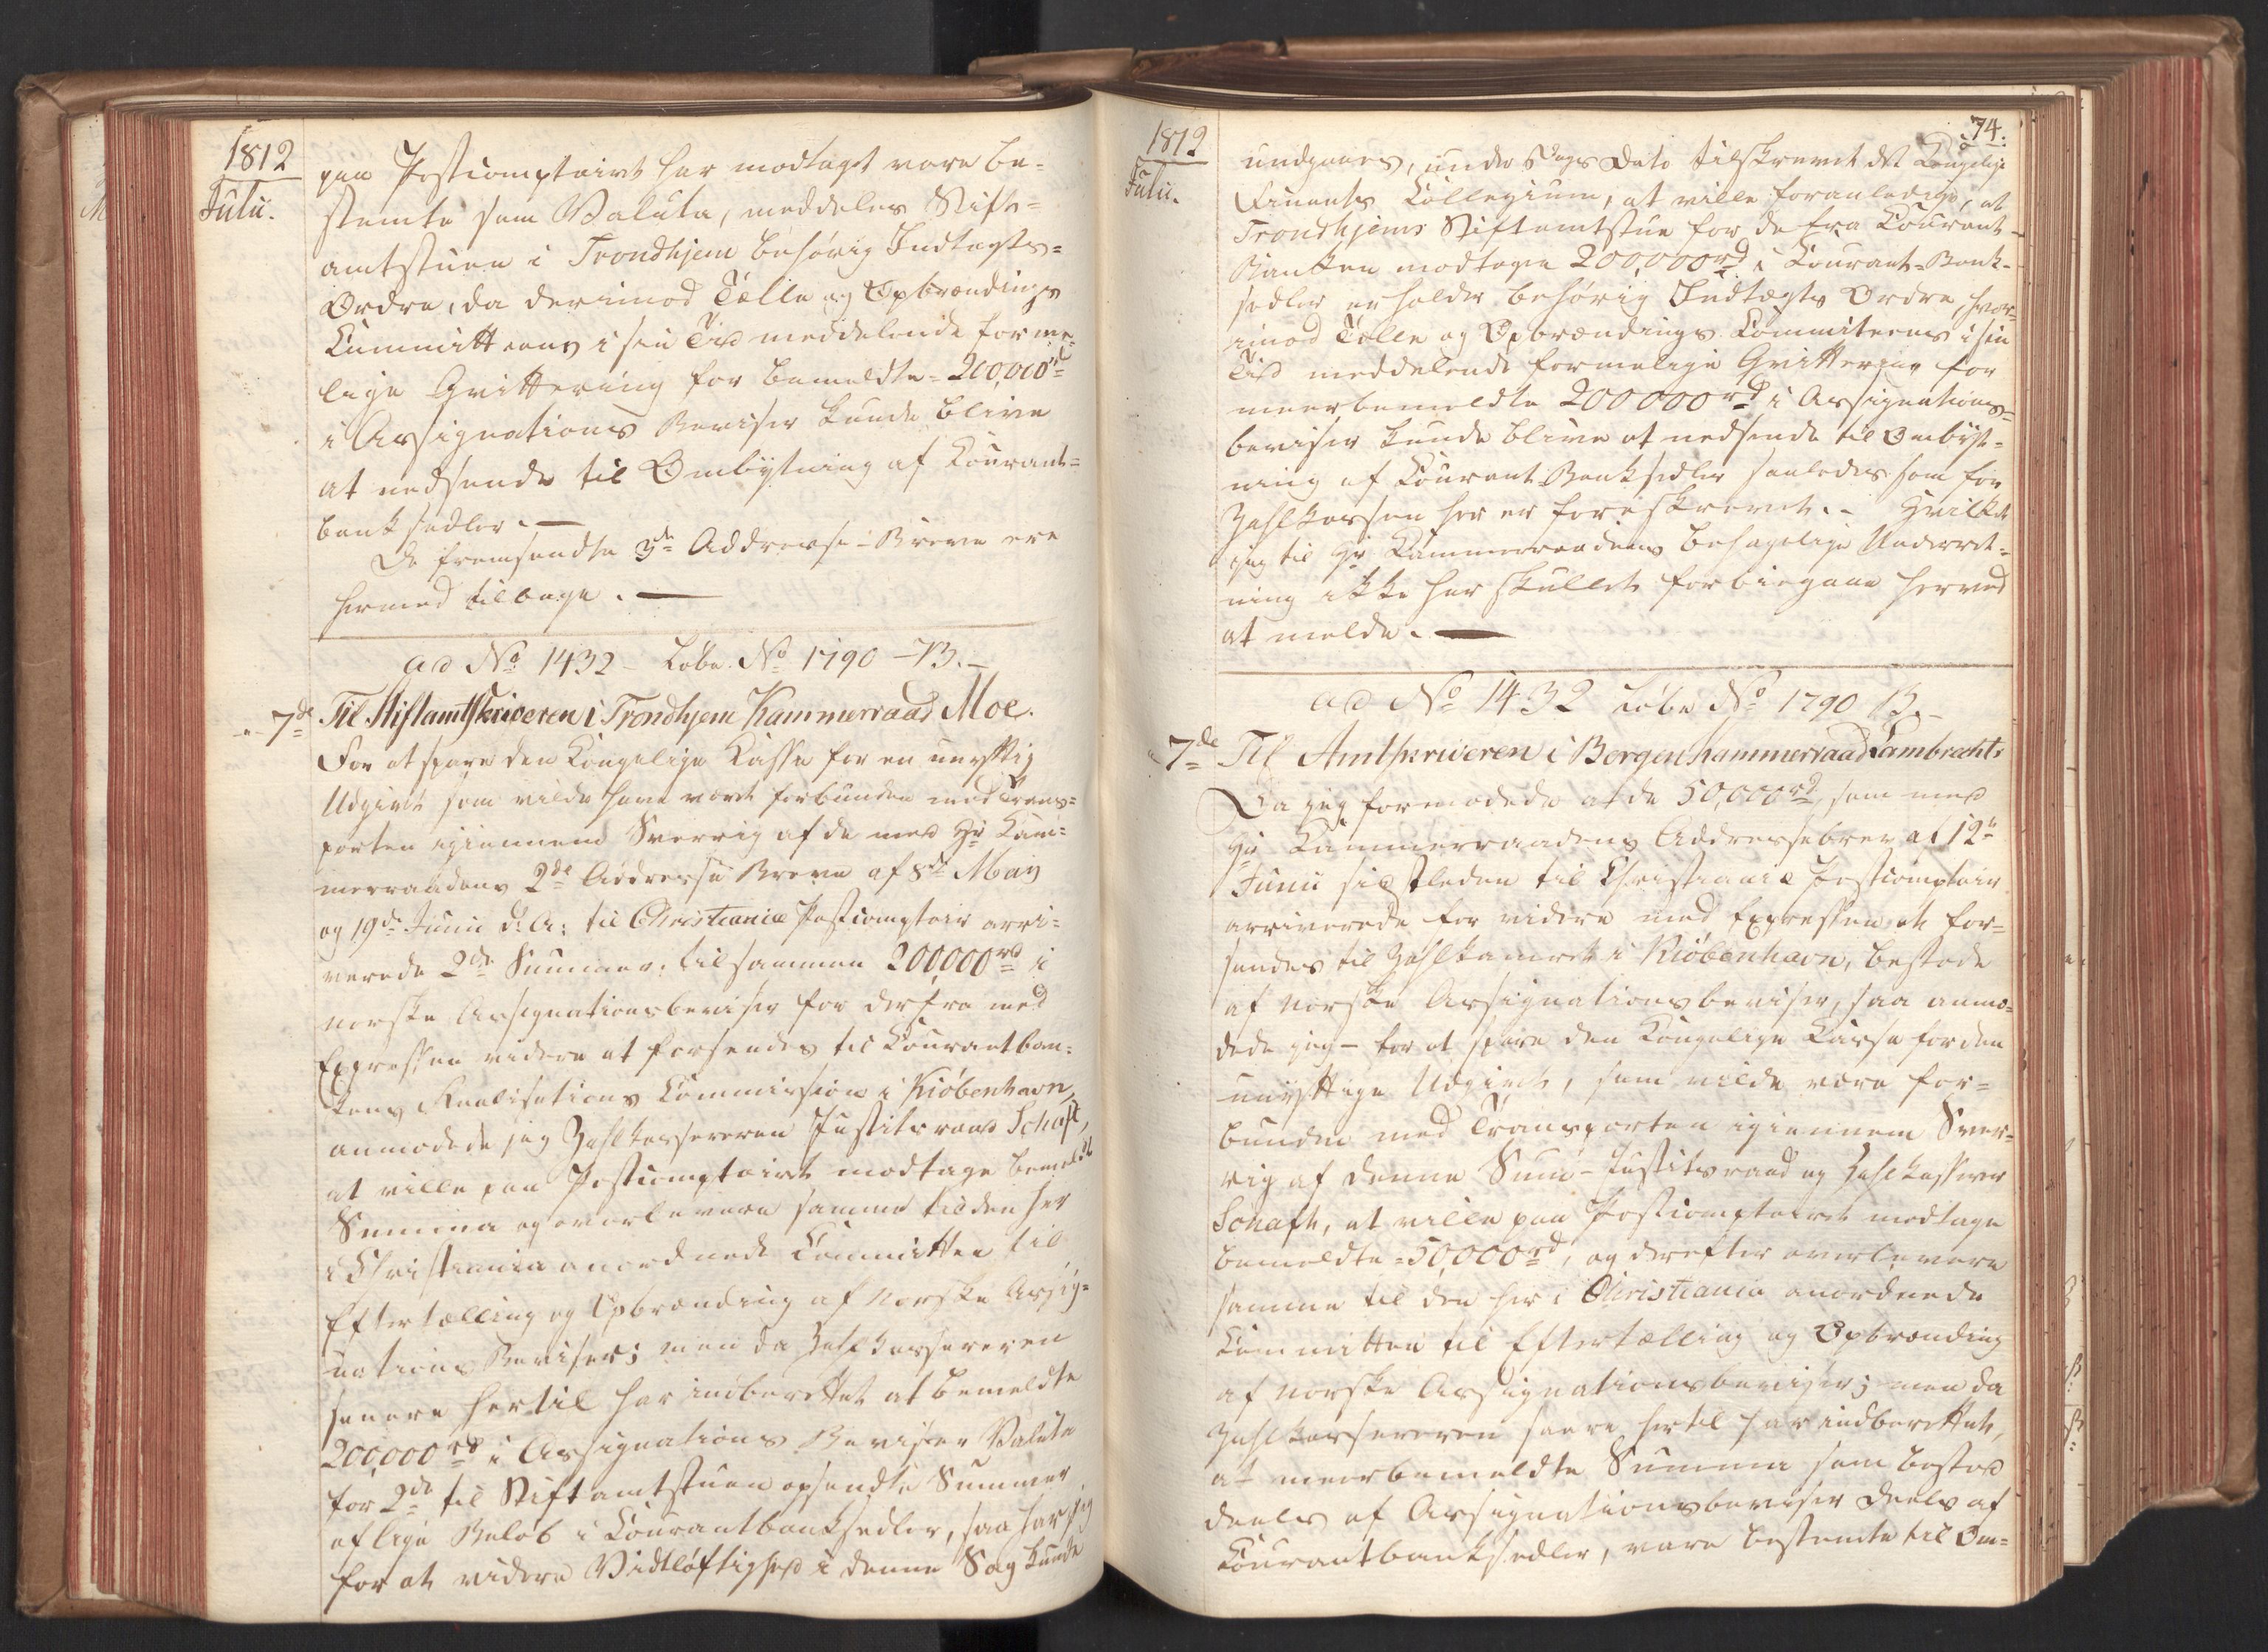 1812
Julii.
paa Postcomptoiret har modtaget vare be-
stemte som Valuta, meddeles Stift-
amtstuen i Trondhjem behørig Indtægts-
Ordre, da derimod Tælle og Opbrændings
Committeens i sin Tid meddelende forme-
lige Qvittering for bemeldte 200,000 rd
i Assignations Beviser kunde blive
at nedsende til Ombytning af Courant-
banksedler. —
De fremsendte 3de Addresse-Breve ere
hermed tilbage. —
ad No 1432 - Løbe No 1790 - B. -
- 7de Til Stiftamtskriveren i Trondhjem Kammerraad Moe.
For at spare den Kongelige Casse for en unyttig
Udgivt som vilde have vært forbunden med Trans-
porten igiennem Sverrig af de med Hr Kam-
merraadens 2de Addresse Breve af 8de May
og 19de Junii d: A: til Christianiæ Postcomptoir arri-
verede 2de Summer, tilsammen 200,000 rd i
norske Assignationsbeviser for derfra med
Expressen videre at forsendes til Courantban-
kens Realisations Commission i Kiöbenhavn,
anmodede jeg Zahlkassereren Justitsraad Schaft,
at ville paa Postcomptoiret modtage bemeldte
Summa og overlevere samme til den her
i Christiania anordnede Committee til
Eftertælling og Opbrænding af Norske Assig-
nations Beviser; men da Zahlkassereren
senere hertil har indberettet at bemeldte
200,000 rd i Assignations Beviser Valuta
for 2de til Stiftamtstuen opsendte Summer
af lige Beløb i Courantbanksedler, saa har jeg
for at videre Vidtløftighed i denne Sag kunde
74.
1812
Julii.
undgaaes, under Dags Dato tilskrevet det Kongelige
Finants Collegium, at ville foranledige, at
Trondhjems Stiftamtstue for de fra Courant-
Banken modtagne 200,000 rd i Courant-Bank-
sedler erholder behørig Indtægts Ordre, hvor-
imod Tælle og Opbrændings Committeens i sin
Tid meddelende formelige Qvittering for
meerbemeldte 200000 rd i Assignations-
beviser kunde blive at nedsende til Ombyt-
ning af Courant-Banksedler saaledes som for
Zahlkassen her er foreskrevet. - Hvilket
jeg til Hr Kammerraadens behagelige Underret-
ning ikke har skullet forbiegaae herved
at melde. —
ad No 1432 Løbe No 1790 B. -
- 7de Til Amtskriveren i Bergen Kammerraad Lambrechts
Da jeg formodede at de 50,000 rd som med
Hr Kammerraadens Addressebrev af 12te
Junii sidstleden til Christianiæ Postcomptoir
arriverede for videre med Expressen at for-
sendes til Zahlkameret i Kiöbenhavn, bestode
af norske Assignationsbeviser, saa anmo-
dede jeg - for at spare den Kongelige Casse for den
unyttige Udgivt, som vilde være for-
bunden med Transporten igiennem Sver-
rig af denne Sum - Justitsraad og Zahlkasserer
Schaft, at ville paa Postcomptoiret modtage
bemeldte 50,000 rd, og derefter overlevere
samme til den her i Christiania anordnede
Committee til Eftertælling og Opbrænding
af norske Assignationsbeviser; men da
Zahlkassereren senere hertil har indberettet,
at meerbemeldte Summa som bestod
deels af Assignationsbeviser deels af
Courantbanksedler, vare bestemte til Om-